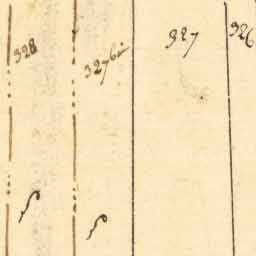 328
327bis
327
326